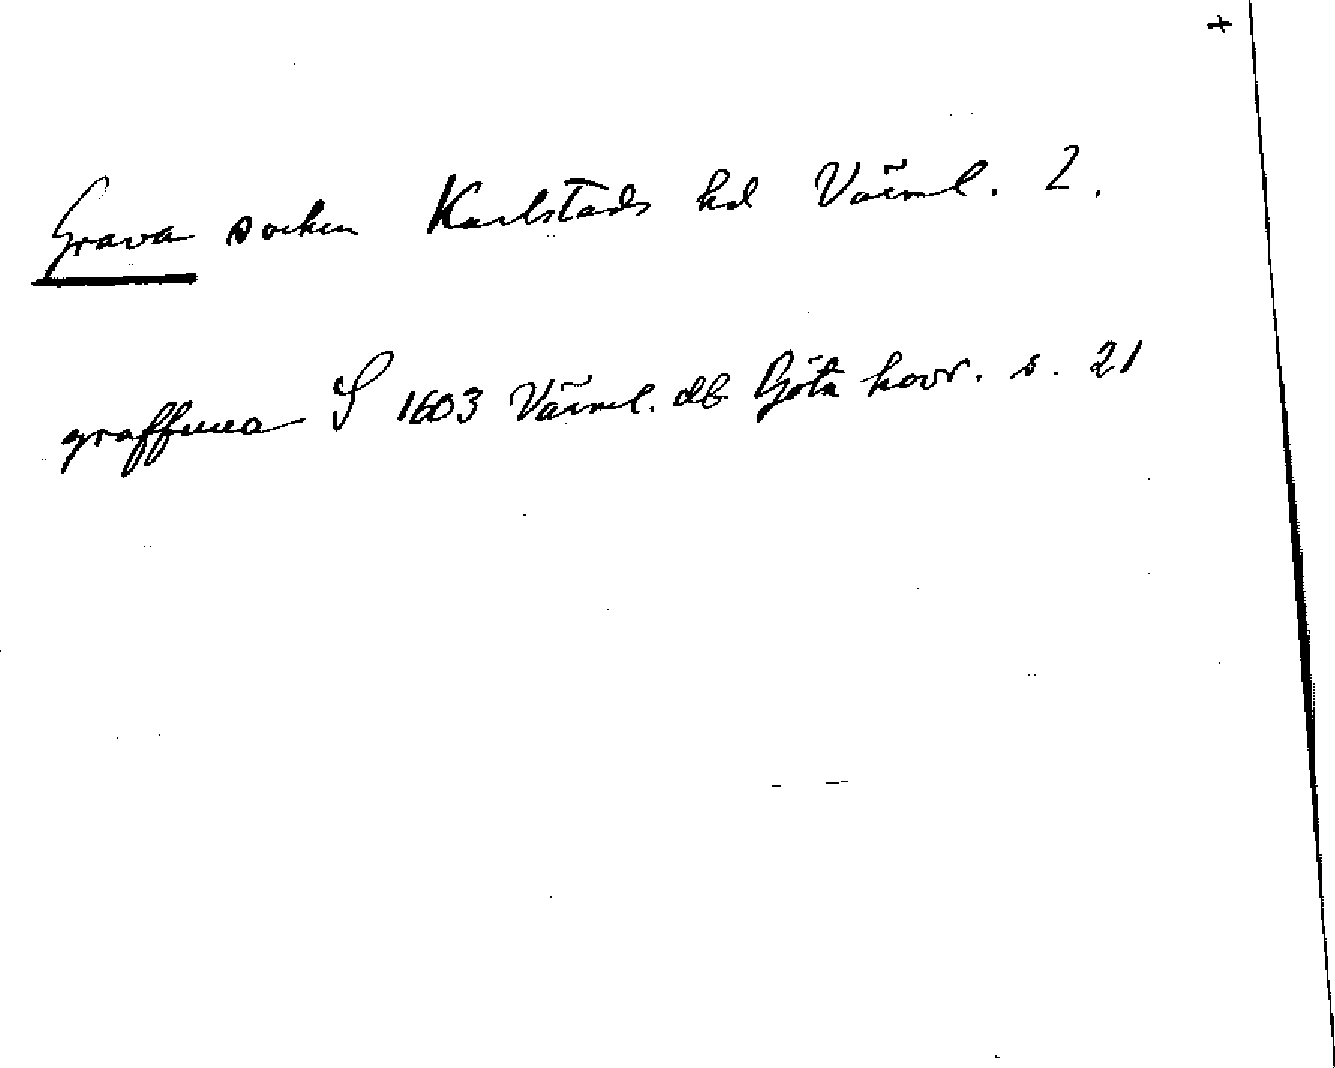 +
Grava socken Karlstads hd Värml. 2.
graffuua S 1603 Värml. db Göta hovr. s. 21